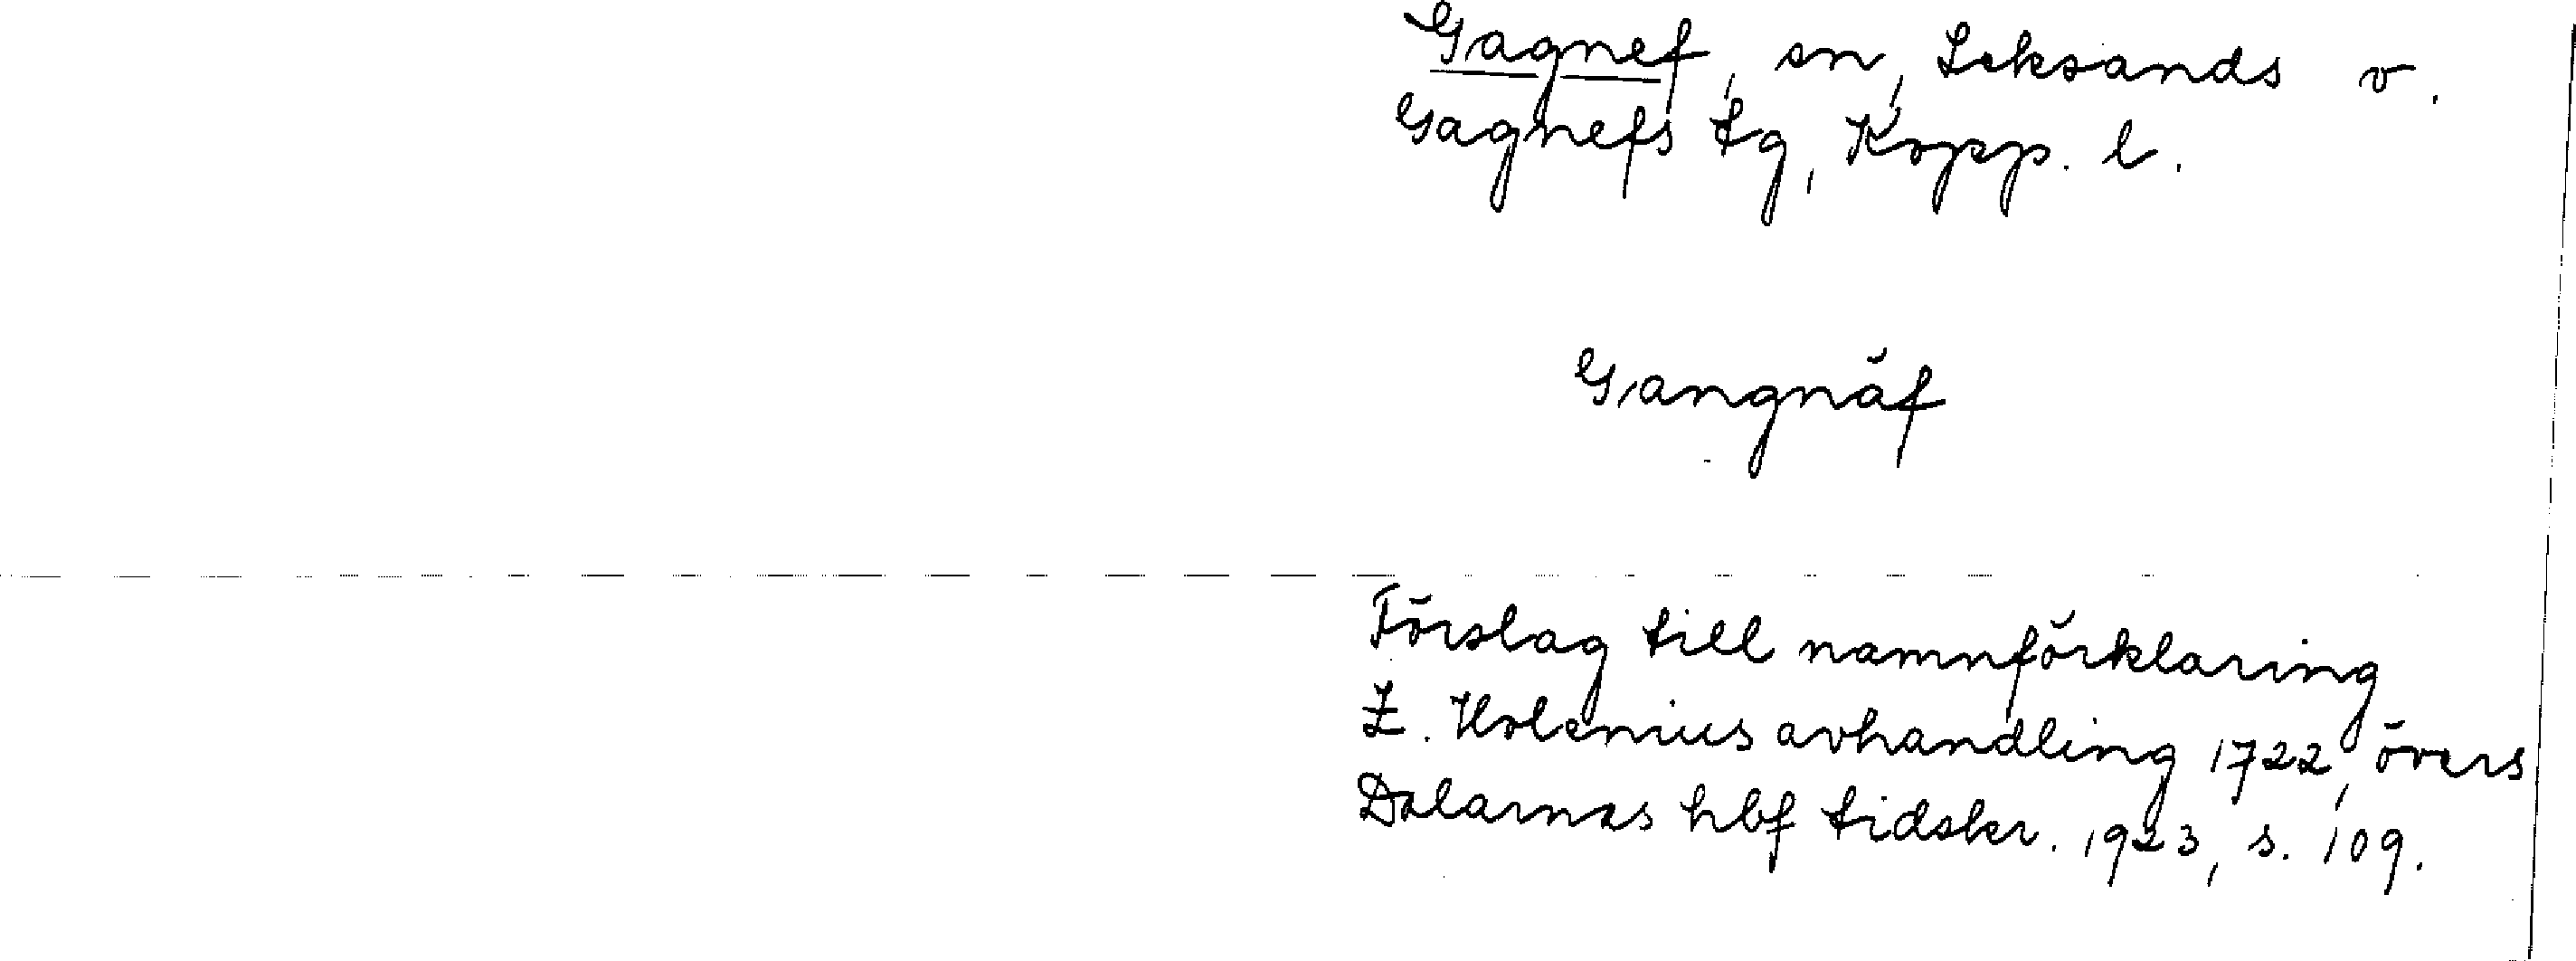 Gagnef, sn, Leksands o.
Gagnefs tg, Kopp. l.
Gangnäf
Förslag till namnförklaring
Z. Holenius avhandling 1722, övers
Dalarnas hbf tidskr. 1923, s. 109.